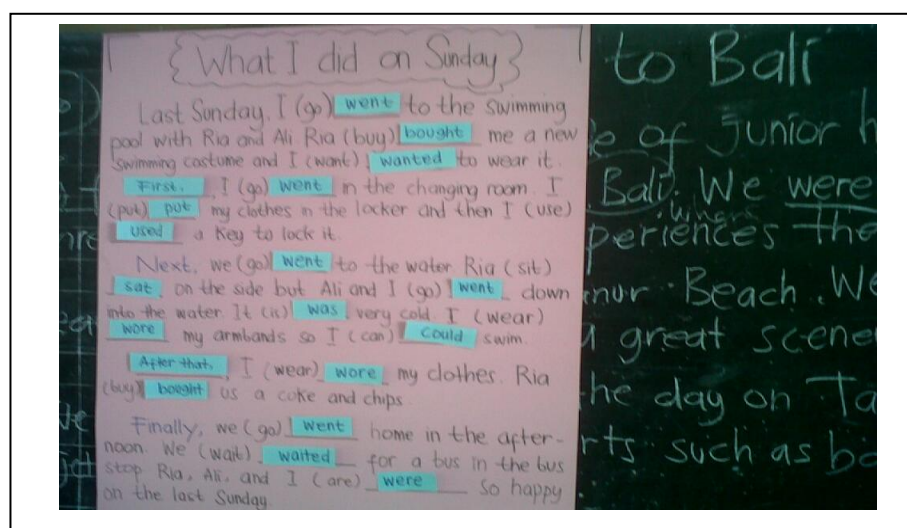 { What I did on Sunday }
Last Sunday, I (go) went to the swimming
pool with Ria and Ali Ria (buy) bought me a new
swimming costume and I (want) wanted to wear it.
First, I (go) went in the changing room. I
(put) put my clothes in the locker and then I (use)
used a key to lock it.
Next, we (go) went to the water Ria (sit)
sat, on the side but Ali and I (go) went down
into the water. It (is) was very cold. I (wear)
wore my armbands so I (can) could swim.
After that, I (wear) wore my clothes. Ria
(buy) bought us a coke and chips.
Finally, we (go) went home in the after-
noon. We (wait) waited for a bus in the bus
stop Ria, Ali, and I (are) were so happy
on the last Sunday.
to Bali
of junior h
Bali. We were
where
periences the
nur Beach. We
a great scene
he day on Ta
rts such as bo